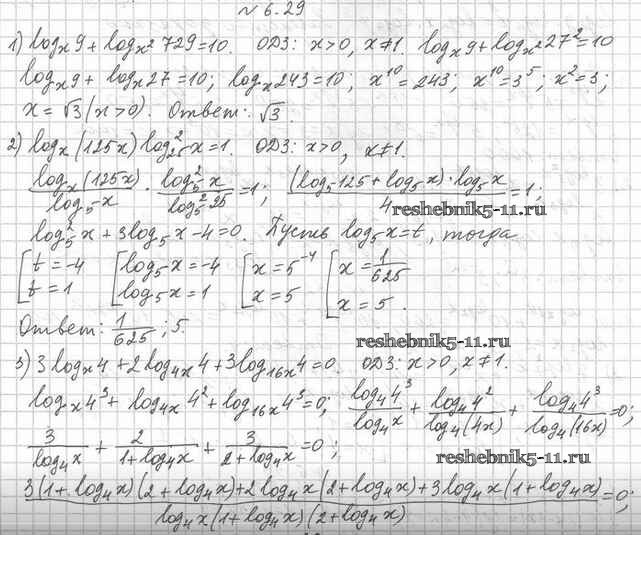 № 6.29
1) logₓ9 + logₓ²729 = 10. ОДЗ: x>0, x≠1. logₓ9 + logₓ²27² = 10
logₓ9 + logₓ27 = 10; logₓ243 = 10; x¹⁰ = 243; x¹⁰ = 3⁵; x² = 3;
x = √3 (x>0). Ответ: √3.
2) logₓ(125x) log²₂₅x = 1. ОДЗ: x>0, x≠1.
log₅(125x)/log₅x · log₅²x/log₅²25 = 1; (log₅125 + log₅x)·log₅x/4 = 1;
reshebnik5-11.ru
log₅²x + 3log₅x - 4 = 0. Пусть log₅x = t, тогда
[t = -4 [log₅x = -4 [x = 5⁻⁴ [x = 1/625
t = 1 log₅x = 1 x = 5 x = 5.
Ответ: 1/625; 5.
reshebnik5-11.ru
3) 3logₓ4 + 2log₄ₓ4 + 3log₁₆ₓ4 = 0. ОДЗ: x>0, x≠1.
logₓ4³ + log₄ₓ4² + log₁₆ₓ4³ = 0; log₄4³/log₄x + log₄4²/log₄(4x) + log₄4³/log₄(16x) = 0;
3/log₄x + 2/(1+log₄x) + 3/(2+log₄x) = 0;
reshebnik5-11.ru
3(1+log₄x)(2+log₄x)+2log₄x(2+log₄x)+3log₄x(1+log₄x)/log₄x(1+log₄x)(2+log₄x) = 0;